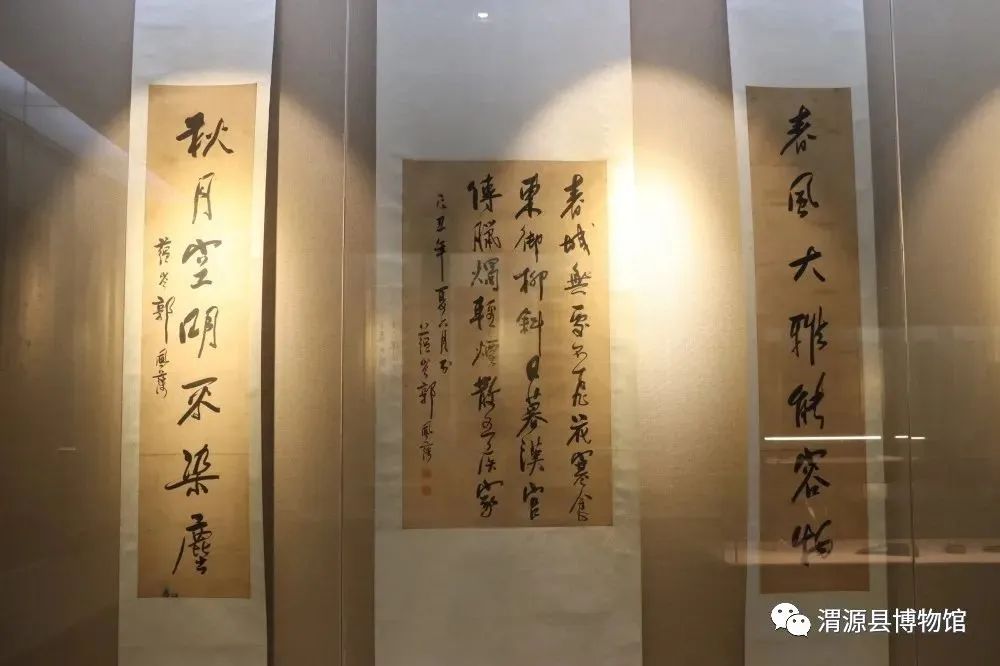 春風大雅能容物
春城無處不飛花寒食
東御柳斜日暮漢宮
傳臘燭輕煙散五侯家
己丑年夏六月書
郭風
秋月空明不染塵
郭風
渭源县博物馆